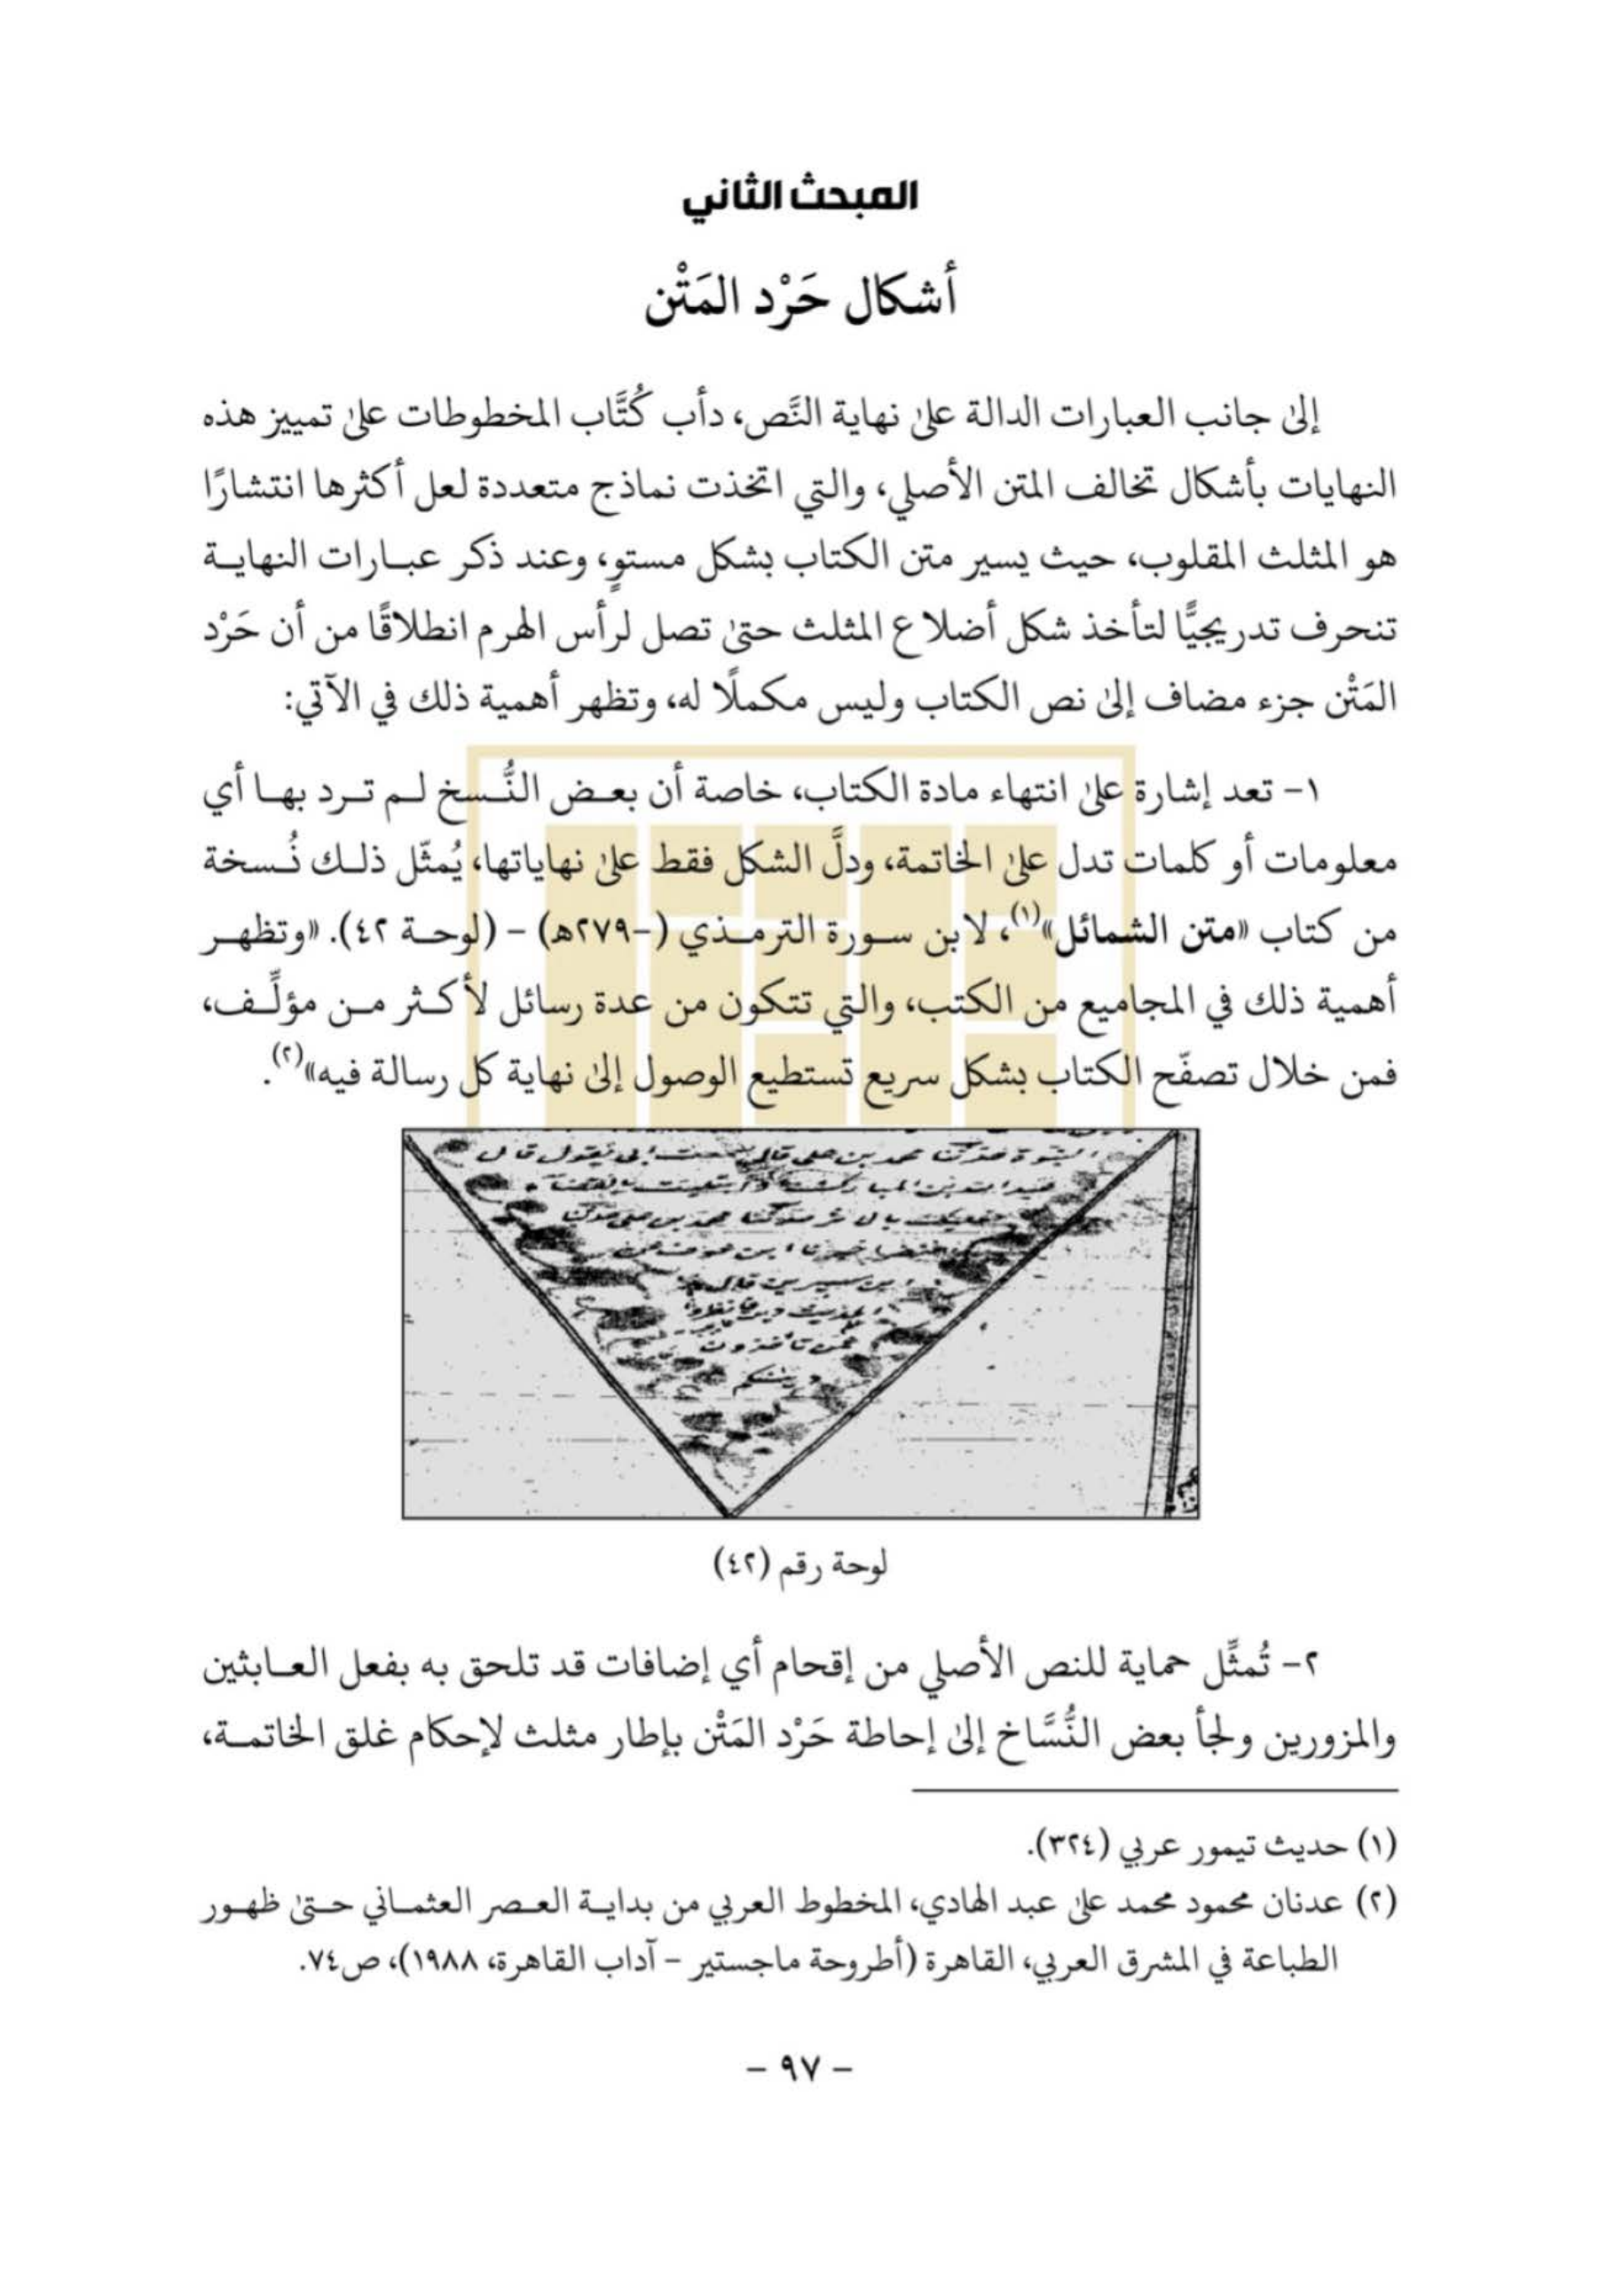 المبحث الثاني
أشكال حَرْد المَتْن
إلىٰ جانب العبارات الدالة علىٰ نهاية النَّص، دأب كُتَّاب المخطوطات علىٰ تمييز هذه
النهايات بأشكال تخالف المتن الأصلي، والتي اتخذت نماذج متعددة لعل أكثرها انتشارًا
هو المثلث المقلوب، حيث يسير متن الكتاب بشكل مستوٍ، وعند ذكر عبارات النهاية
تنحرف تدريجيًّا لتأخذ شكل أضلاع المثلث حتىٰ تصل لرأس الهرم انطلاقًا من أن حَرْد
المَتْن جزء مضاف إلىٰ نص الكتاب وليس مكملًا له، وتظهر أهمية ذلك في الآتي:
١- تعد إشارة علىٰ انتهاء مادة الكتاب، خاصة أن بعض النُّسخ لم ترد بها أي
معلومات أو كلمات تدل علىٰ الخاتمة، ودلَّ الشكل فقط علىٰ نهاياتها، يُمثّل ذلك نُسخة
من كتاب «متن الشمائل»(١)، لابن سورة الترمذي (-٢٧٩هـ) - (لوحة ٤٢). «وتظهر
أهمية ذلك في المجاميع من الكتب، والتي تتكون من عدة رسائل لأكثر من مؤلِّف،
فمن خلال تصفّح الكتاب بشكل سريع تستطيع الوصول إلىٰ نهاية كل رسالة فيه»(٢).
محمد بن علي قال
ابن سيرين قال
لوحة رقم (٤٢)
٢- تُمثِّل حماية للنص الأصلي من إقحام أي إضافات قد تلحق به بفعل العابثين
والمزورين ولجأ بعض النُّسَّاخ إلىٰ إحاطة حَرْد المَتْن بإطار مثلث لإحكام غلق الخاتمة،
(١) حديث تيمور عربي (٣٢٤).
(٢) عدنان محمود محمد علىٰ عبد الهادي، المخطوط العربي من بداية العصر العثماني حتىٰ ظهور
الطباعة في المشرق العربي، القاهرة (أطروحة ماجستير - آداب القاهرة، ١٩٨٨)، ص٧٤.
- ٩٧ -